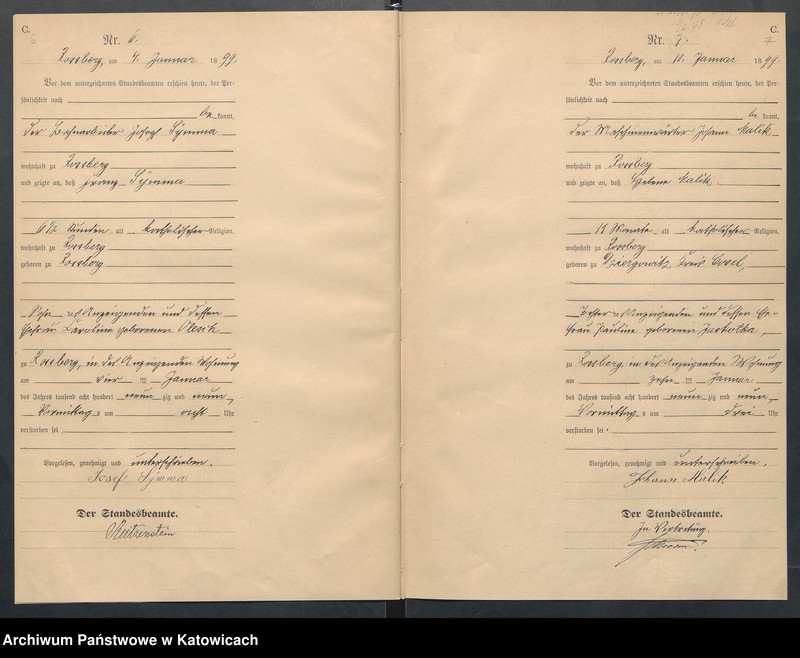 C.
6
Nr. 6.
Rossberg, am 4. Januar 1899.
Vor dem unterzeichneten Standesbeamten erschien heute, der Per-
sönlichkeit nach
be kannt,
der Josef Symma
wohnhaft zu Rossberg
und zeigte an, daß Franz Symma
6 1/2 Stunden alt katholischer Religion,
wohnhaft zu Rossberg
geboren zu Rossberg
Sohn des Anzeigenden und dessen
Ehefrau Caroline geborenen Olesch
zu Rossberg, in des Anzeigenden Wohnung
am vier ten Januar
des Jahres tausend acht hundert neun zig und neun,
Vormittags um acht Uhr
verstorben sei
Vorgelesen, genehmigt und unterschrieben.
Josef Symma
Der Standesbeamte.
Reitzenstein
C.
7
Nr. 7.
Rossberg, am 10. Januar 1899.
Vor dem unterzeichneten Standesbeamten erschien heute, der Per-
sönlichkeit nach
be kannt,
der Maschinenwärter Johann Malik
wohnhaft zu Rossberg
und zeigte an, daß Helene Malik
11 Monate alt katholischer Religion,
wohnhaft zu Rossberg
geboren zu Dziergowitz, Kreis Cosel,
Tochter des Anzeigenden und dessen Ehe-
frau Pauline geborenen
zu Rossberg, in des Anzeigenden Wohnung
am zehn ten Januar
des Jahres tausend acht hundert neun zig und neun,
Vormittags um drei Uhr
verstorben sei.
Vorgelesen, genehmigt und unterschrieben.
Johann Malik
Der Standesbeamte.
In Vertretung.
Archiwum Państwowe w Katowicach